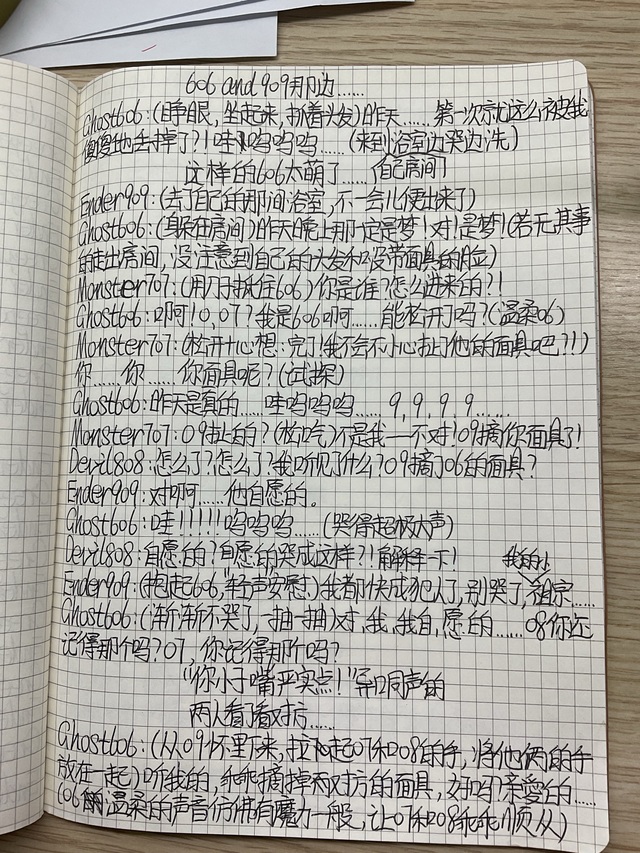 606 and 909那边……
Ghost606:(睁眼，坐起来，抓着头发)昨天……第一次就这么被我
傻傻地丢掉了?!哇呜呜呜……(来到浴室边哭边洗)
自己房间
这样的606太萌了……
Ender909:(去了自己的那间浴室,不一会儿便出来了)
Ghost606:(躲在房间)昨天晚上那一定是梦!对!是梦!(若无其事
的走出房间,没注意到自己的头发和没带面具的脸)
Monster707:(用刀抓住606)你是谁?怎么进来的?!
Ghost606:啊!0,07?我是606啊……能松开了吗?(温柔06)
Monster707:(松开+心想:完了!我不会不小心扯了他的面具吧?!)
你……你……你面具呢?(试探)
Ghost606:昨天是真的……哇呜呜呜……9,9,9,9……
Monster707:09扯的?(松吃)不是我——不对!09摘你面具了!
Devil808:怎么了?怎么了?我听见了什么?09摘了06的面具?
Ender909:对啊……他自愿的。
Ghost606:哇!!!!!!呜呜呜……(哭得超极大声)
Devil808:自愿的?自愿的哭成这样?!解释一下!
我的小
Ender909:(抱起606,轻声安慰)我都快成犯人了,别哭了,祖宗……
Ghost606:(渐渐不哭了,一抽一抽)对,我,我自,愿的……08你还
记得那个吗?07,你记得那个吗?
"你小子嘴严实点!"异口同声的
两人看了看对方……
Ghost606:(从09怀里下来,拉起07和08的手,将他俩的手
放在一起)听我的,乖乖摘掉对方的面具,好吗?亲爱的……
(06的温柔的声音仿佛有魔力一般,让07和08乖乖顺从)